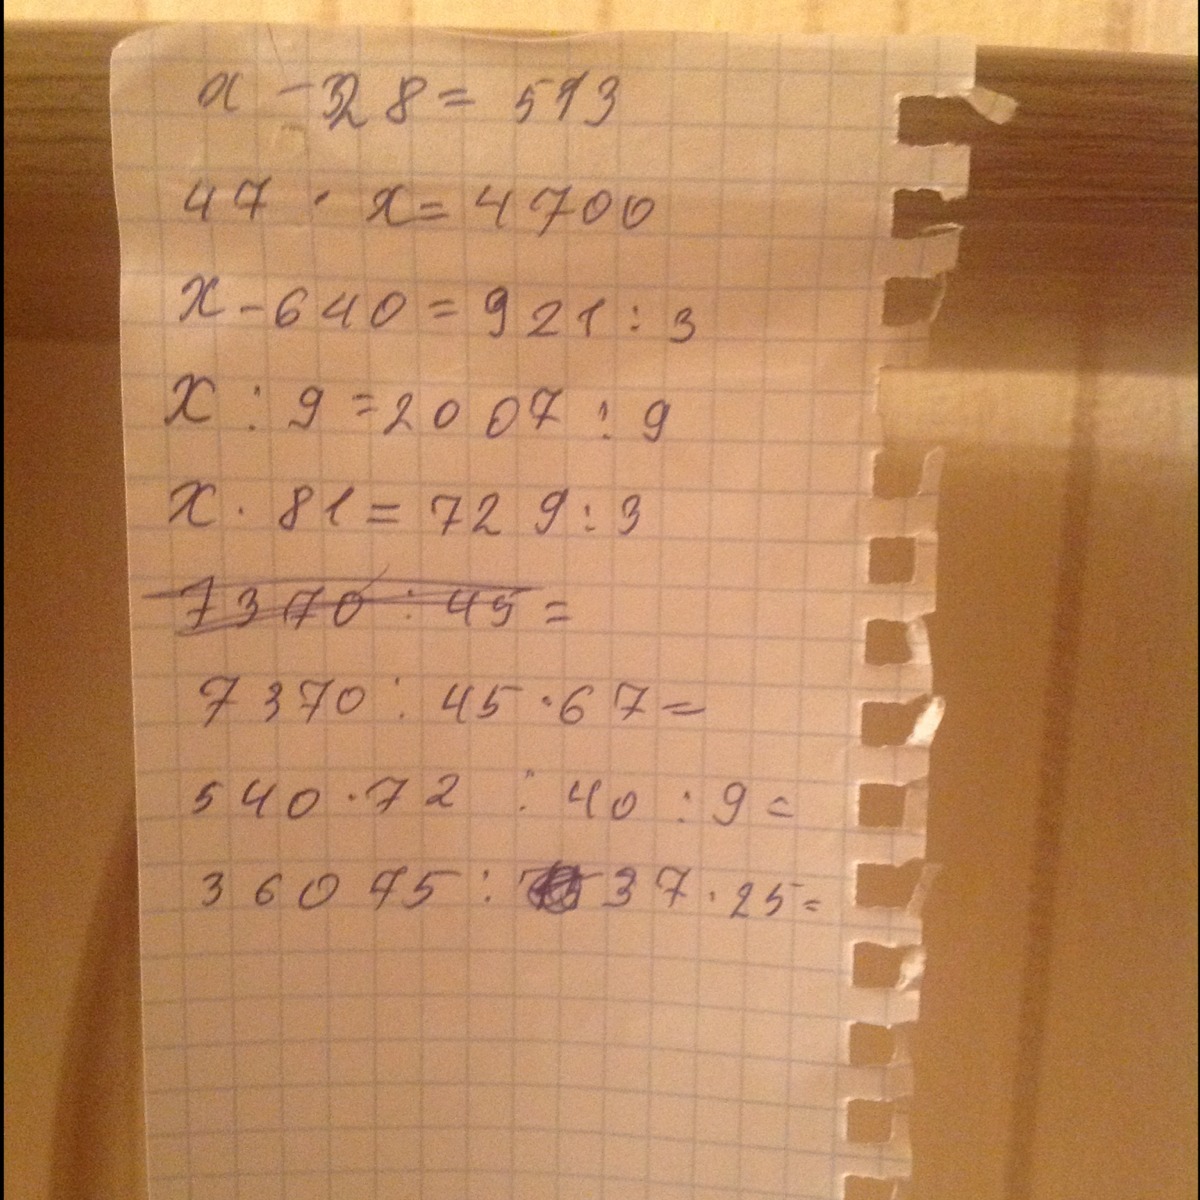 x - 328 = 513
47 · x = 4700
x - 640 = 921 : 3
x : 9 = 2007 : 9
x · 81 = 729 : 3
7370 : 45 =
7370 : 45 · 67 =
540 · 72 : 40 : 9 =
36075 : 37 · 25 =